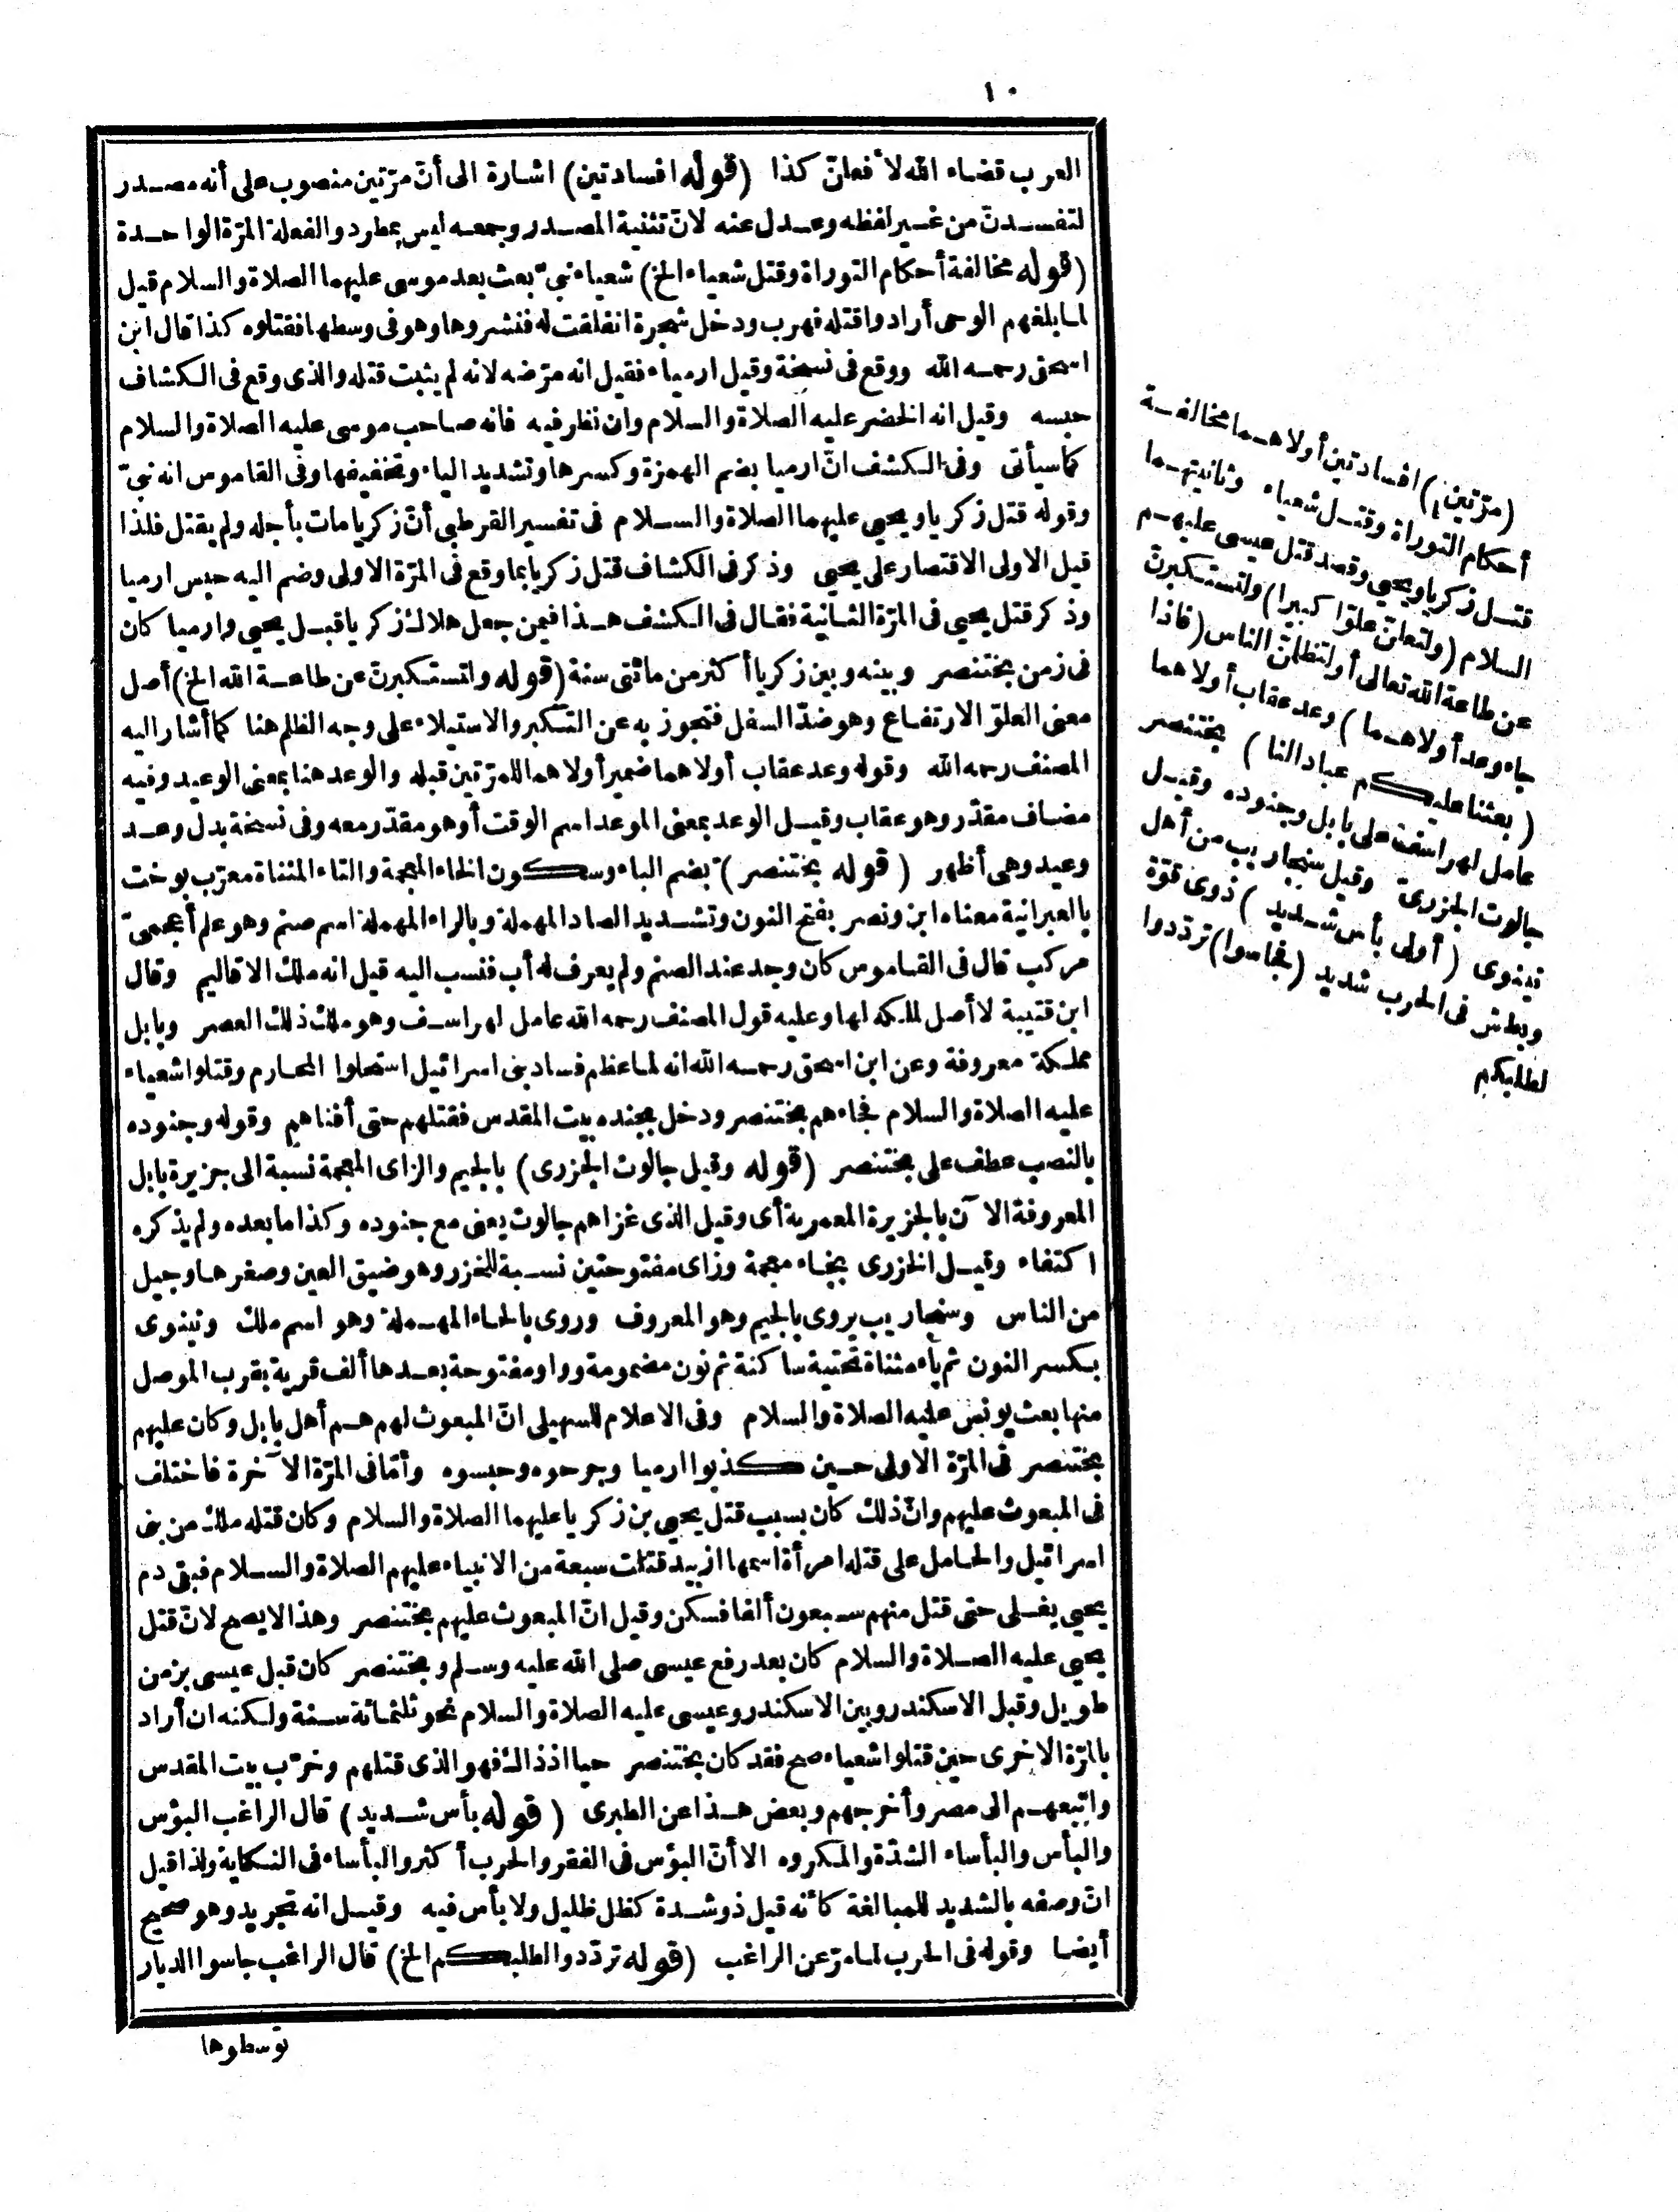 ١٠
العرب قضاء الله لأفعلنّ كذا (قوله افسادتين) اشارة الى أنّ مرّتين منصوب على أنه مصدر
لتفسدنّ من غير لفظه وعدل عنه لانّ تثنية المصدر وجمعه ليس بمطرد والفعلة المرّة الواحدة
(قوله مخالفة أحكام التوراة وقتل شعياء الخ) شعياء نبيّ بعث بعد موسى عليهما الصلاة والسلام قيل
لما بلغهم الوحى أرادوا قتله فهرب ودخل شجرة انفلقت له فنشروها وهو فى وسطها فقتلوه كذا قال ابن
اسحق رحمه الله ووقع فى نسخة وقيل ارمياء فقيل انه مرّضه لانه لم يثبت قتله والذى وقع فى الكشاف
حبسه وقيل انه الخضر عليه الصلاة والسلام وان نظر فيه فانه صاحب موسى عليه الصلاة والسلام
كما سيأتى وفى الكشف انّ ارميا بضم الهمزة وكسرها وتشديد الياء وتخفيفها وفى القاموس انه نبيّ
وقوله قتل زكريا ويحيى عليهما الصلاة والسلام فى تفسير القرطبى أنّ زكريا مات بأجله ولم يقتل فلذا
قيل الاولى الاقتصار على يحيى وذكر فى الكشاف قتل زكريا بما وقع فى المرّة الاولى وضم اليه حبس ارميا
وذكر قتل يحيى فى المرّة الثانية فقال فى الكشف هذا فيمن جعل هلاك زكريا قبل يحيى وارميا كان
فى زمن بختنصر وبينه وبين زكريا أكثر من مائتى سنة (قوله ولتستكبرنّ عن طاعة الله الخ) أصل
معنى العلوّ الارتفاع وهو ضدّ السفل فتجوز به عن التكبر والاستيلاء على وجه الظلم هنا كما أشار اليه
المصنف رحمه الله وقوله وعد عقاب أولاهما ضمير أولاهما للمرّتين قبله والوعد هنا بمعنى الوعيد وفيه
مضاف مقدّر وهو عقاب وقيل الوعد بمعنى الموعد اسم الوقت أو هو مقدّر معه وفى نسخة بدل وعد
وعيد وهى أظهر (قوله بختنصر) بضم الباء وسكون الخاء المعجمة والتاء المثناة معرّب بوخت
بالعبرانية معناه ابن ونصر بفتح النون وتشديد الصاد المهملة وبالراء المهملة اسم صنم وهو علم أعجمىّ
مركب قال فى القاموس كان وجد عند الصنم ولم يعرف له أب فنسب اليه قيل انه ملك الاقاليم وقال
ابن قتيبة لا أصل لملكه لها وعليه قول المصنف رحمه الله عامل لهراسف وهو ملك ذلك العصر وبابل
مملكة معروفة وعن ابن اسحق رحمه الله انه لما عظم فساد بنى اسرائيل استحلوا المحارم وقتلوا شعياء
عليه الصلاة والسلام فجاءهم بختنصر ودخل بجنده بيت المقدس فقتلهم حتى أفناهم وقوله وجنوده
بالنصب عطف على بختنصر (قوله وقيل جالوت الجزرى) بالجيم والزاى المعجمة نسبة الى جزيرة بابل
المعروفة الآن بالجزيرة العمرية أى وقيل الذى غزاهم جالوت يعنى مع جنوده وكذا ما بعده ولم يذكره
اكتفاء وقيل الخزرى بخاء معجمة وزاى مفتوحتين نسبة للخزر وهو ضيق العين وصغرها وجيل
من الناس وسنجاريب يروى بالجيم وهو المعروف وروى بالحاء المهملة وهو اسم ملك ونينوى
بكسر النون ثم ياء مثناة تحتية ساكنة ثم نون مضمومة وواو مفتوحة بعدها ألف قرية بقرب الموصل
منها بعث يونس عليه الصلاة والسلام وفى الاعلام للسهيلى انّ المبعوث لهم هم أهل بابل وكان عليهم
بختنصر فى المرّة الاولى حين كذبوا ارميا وجرحوه وحبسوه وأمّا فى المرّة الآخرة فاختلف
فى المبعوث عليهم وانّ ذلك كان بسبب قتل يحيى بن زكريا عليهما الصلاة والسلام وكان قتله ملك من بنى
اسرائيل والحامل على قتله امرأة اسمها ازبيد قتلت سبعة من الانبياء عليهم الصلاة والسلام فبقى دم
يحيى يغلى حتى قتل منهم سبعون ألفا فسكن وقيل انّ المبعوث عليهم بختنصر وهذا لا يصح لانّ قتل
يحيى عليه الصلاة والسلام كان بعد رفع عيسى صلى الله عليه وسلم وبختنصر كان قبل عيسى بزمن
طويل وقبل الاسكندر وبين الاسكندر وعيسى عليه الصلاة والسلام نحو ثلثمائة سنة ولكنه ان أراد
بالمرّة الاخرى حين قتلوا شعياء صح فقد كان بختنصر حيا اذ ذاك فهو الذى قتلهم وخرّب بيت المقدس
واتبعهم الى مصر وأخرجهم وبعض هذا عن الطبرى (قوله بأس شديد) قال الراغب البؤس
والبأس والبأساء الشدّة والمكروه الا أنّ البؤس فى الفقر والحرب أكثر والبأساء فى النكاية ولذا قيل
انّ وصفه بالشديد للمبالغة كأنه قيل ذو شدة كظل ظليل ولا بأس فيه وقيل انه تجريد وهو صحيح
أيضا وقوله فى الحرب لما مرّ عن الراغب (قوله تردّدوا لطلبكم الخ) قال الراغب جاسوا الديار
توسطوها
(مرّتين) افسادتين أولاهما مخالفة
أحكام التوراة وقتل شعياء وثانيتهما
قتل زكريا ويحيى وقصد قتل عيسى عليهم
السلام (ولتعلنّ علوّا كبيرا) ولتستكبرنّ
عن طاعة الله تعالى أو لتظلمنّ الناس (فاذا
جاء وعد أولاهما) وعد عقاب أولاهما
(بعثنا عليكم عبادا لنا) بختنصر
عامل لهراسف على بابل وجنوده وقيل
جالوت الجزرىّ وقيل سنجاريب من أهل
نينوى (أولى بأس شديد) ذوى قوّة
وبطش فى الحرب شديد (فجاسوا) تردّدوا
لطلبكم